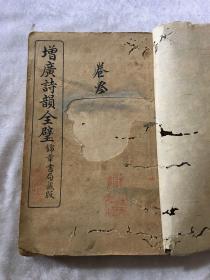 增廣詩韻全璧
錦章書局藏版
卷叁